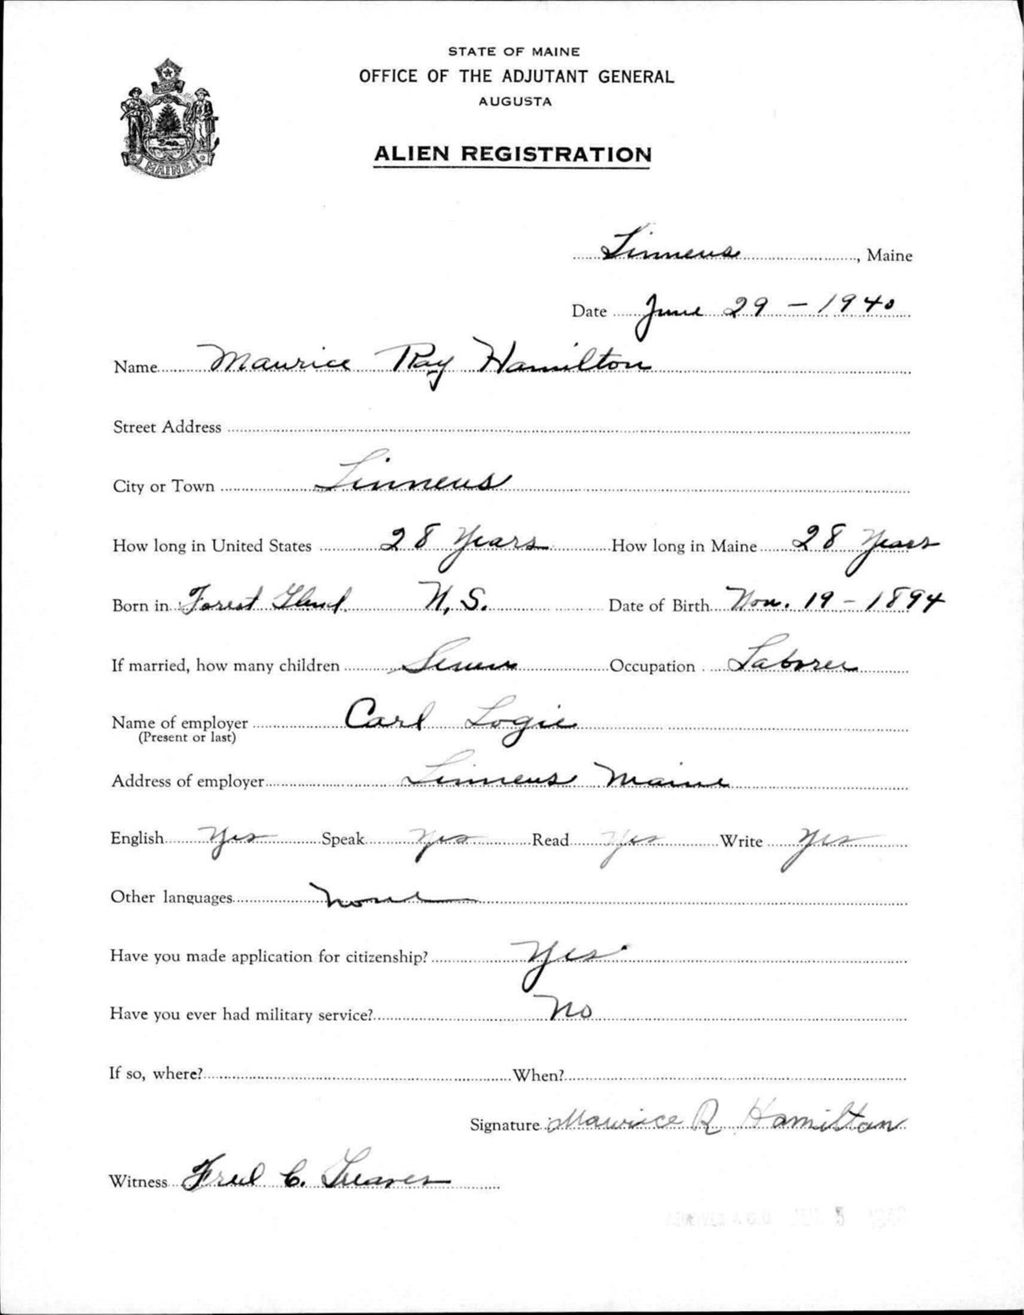 STATE OF MAINE
OFFICE OF THE ADJUTANT GENERAL
AUGUSTA
ALIEN REGISTRATION
MAINE
Linneus, Maine
Date June 29 - 1940
Name Maurice Ray Hamilton
Street Address
City or Town Linneus
How long in United States 28 Years How long in Maine 28 Years
Born in Forest N.S. Date of Birth Nov. 19 - 1894
If married, how many children Seven Occupation Laborer
Name of employer Carl Logie
(Present or last)
Address of employer Linneus Maine
English Yes Speak Yes Read Yes Write Yes
Other languages None
Have you made application for citizenship? Yes
Have you ever had military service? No
If so, where? When?
Signature Maurice R Hamilton
Witness Fred C.